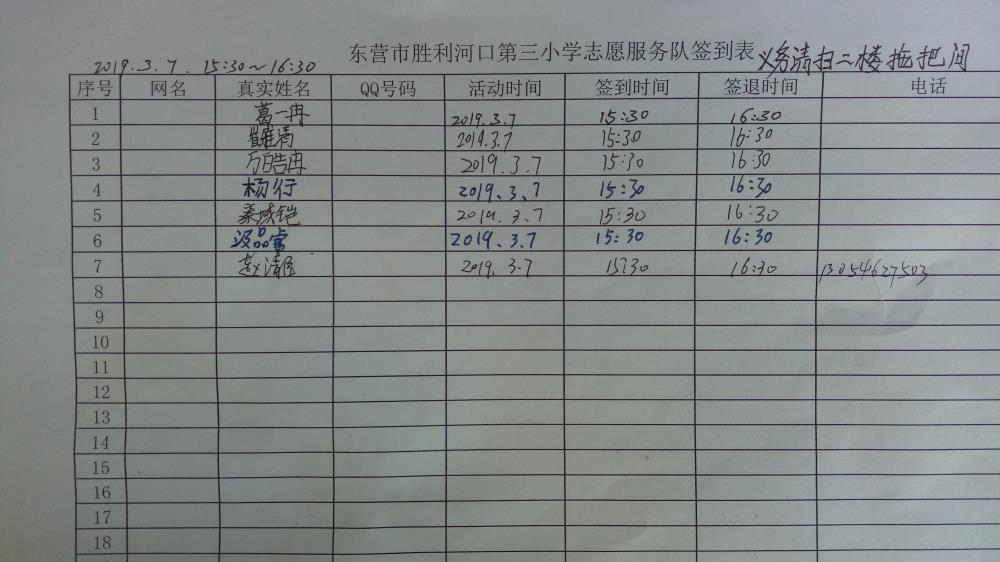 东营市胜利河口第三小学志愿服务队签到表 义务清扫二楼拖把间
2019.3.7. 15:30~16:30
序号 网名 真实姓名 QQ号码 活动时间 签到时间 签退时间 电话
1 葛一冉 2019.3.7 15:30 16:30
2 2019.3.7 15:30 16:30
3 2019.3.7 15:30 16:30
4 杨行 2019.3.7 15:30 16:30
5 2019.3.7 15:30 16:30
6 2019.3.7 15:30 16:30
7 2019.3.7 15:30 16:30 13054627503
8
9
10
11
12
13
14
15
16
17
18